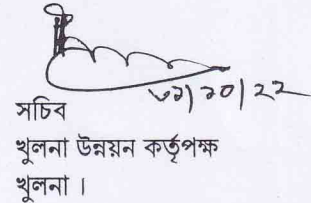 ৩১|১০|২২
সচিব
খুলনা উন্নয়ন কর্তৃপক্ষ
খুলনা ।